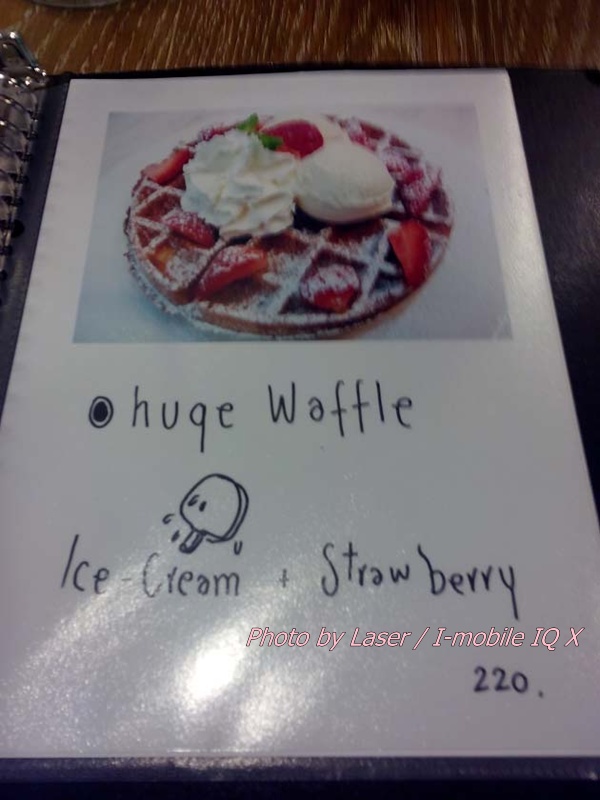 huge Waffle
Ice-Cream + Strawberry
Photo by Laser / I-mobile IQ X
220.